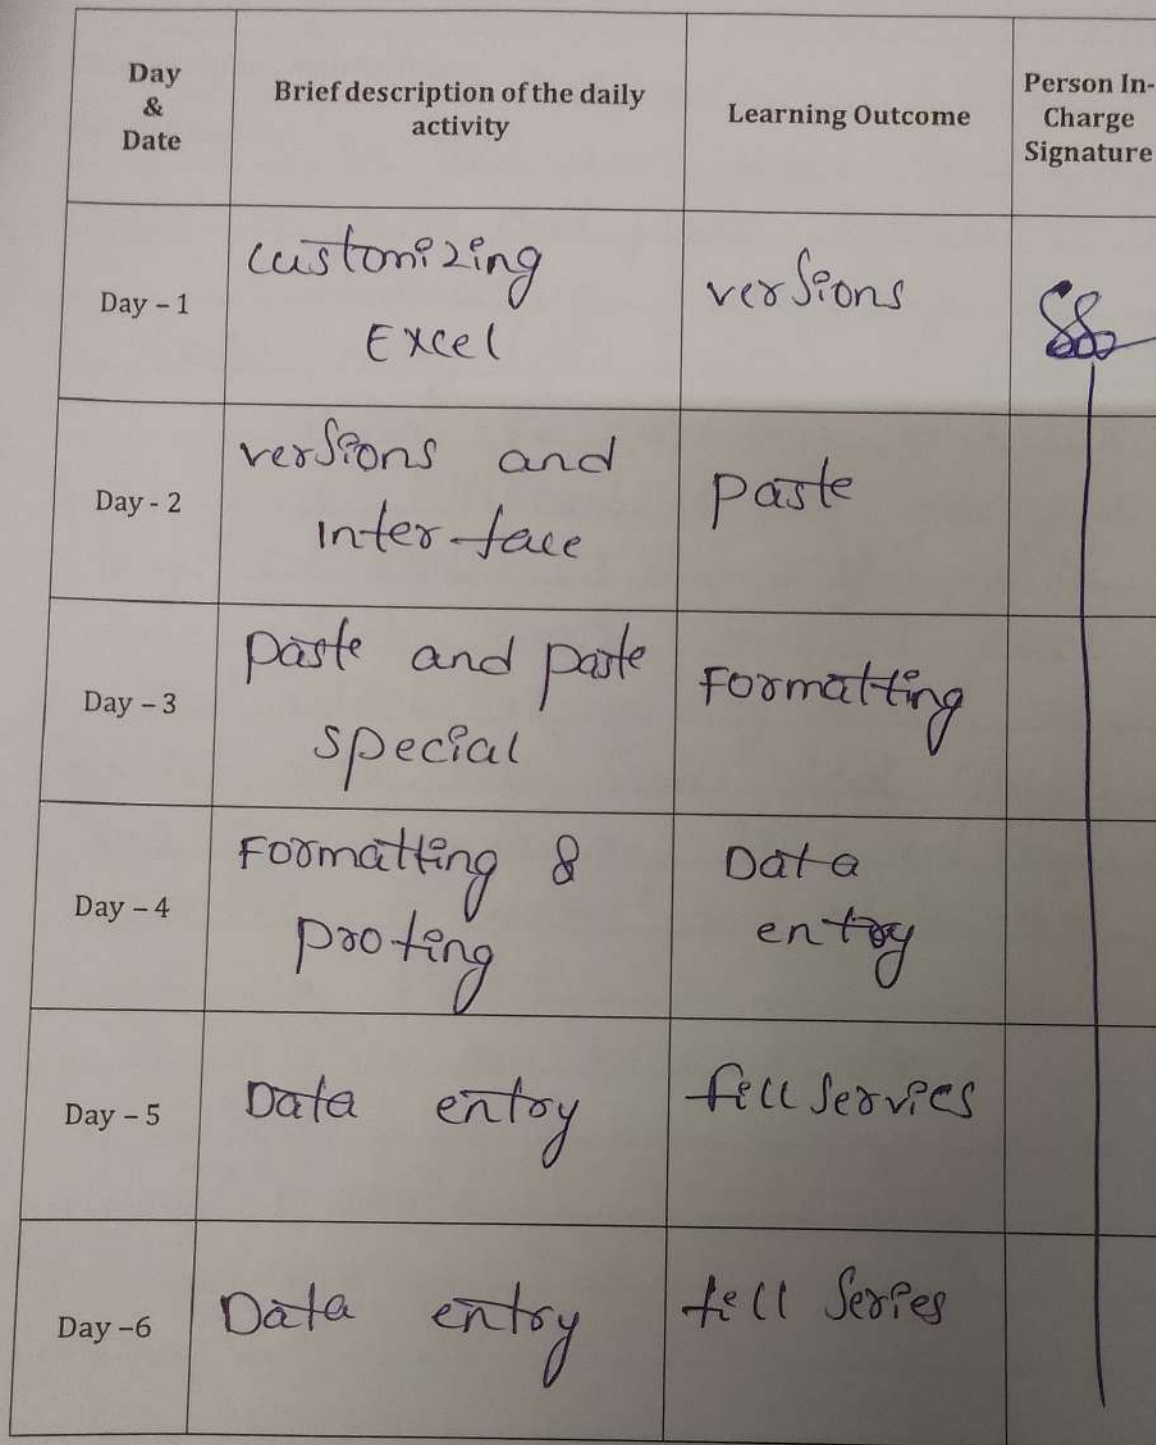 Day
&
Date
Brief description of the daily
activity
Learning Outcome
Person In-
Charge
Signature
Day – 1
customizing
Excel
versions
Day - 2
versions and
Interface
paste
Day – 3
paste and paste
special
Formatting
Day – 4
Formatting &
proting
Data
entry
Day – 5
Data entry
fill servies
Day –6
Data entry
fill series